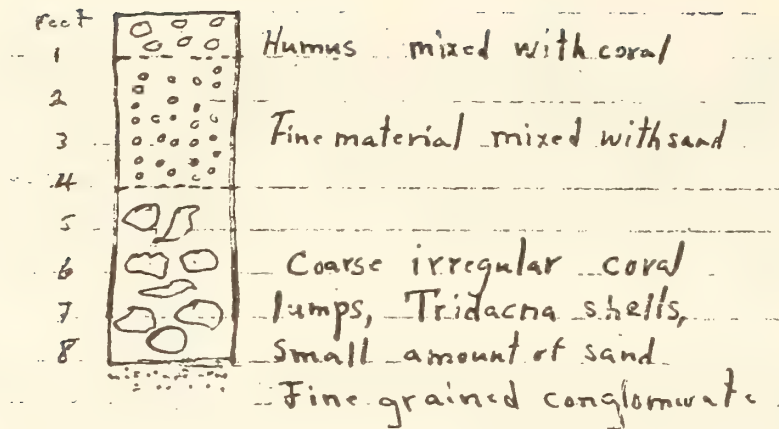 feet
Humus mixed with coral
1
2
Fine material mixed with sand
3
4
5
6 Coarse irregular coral
7 lumps, Tridacna shells,
8 small amount of sand
Fine grained conglomerate